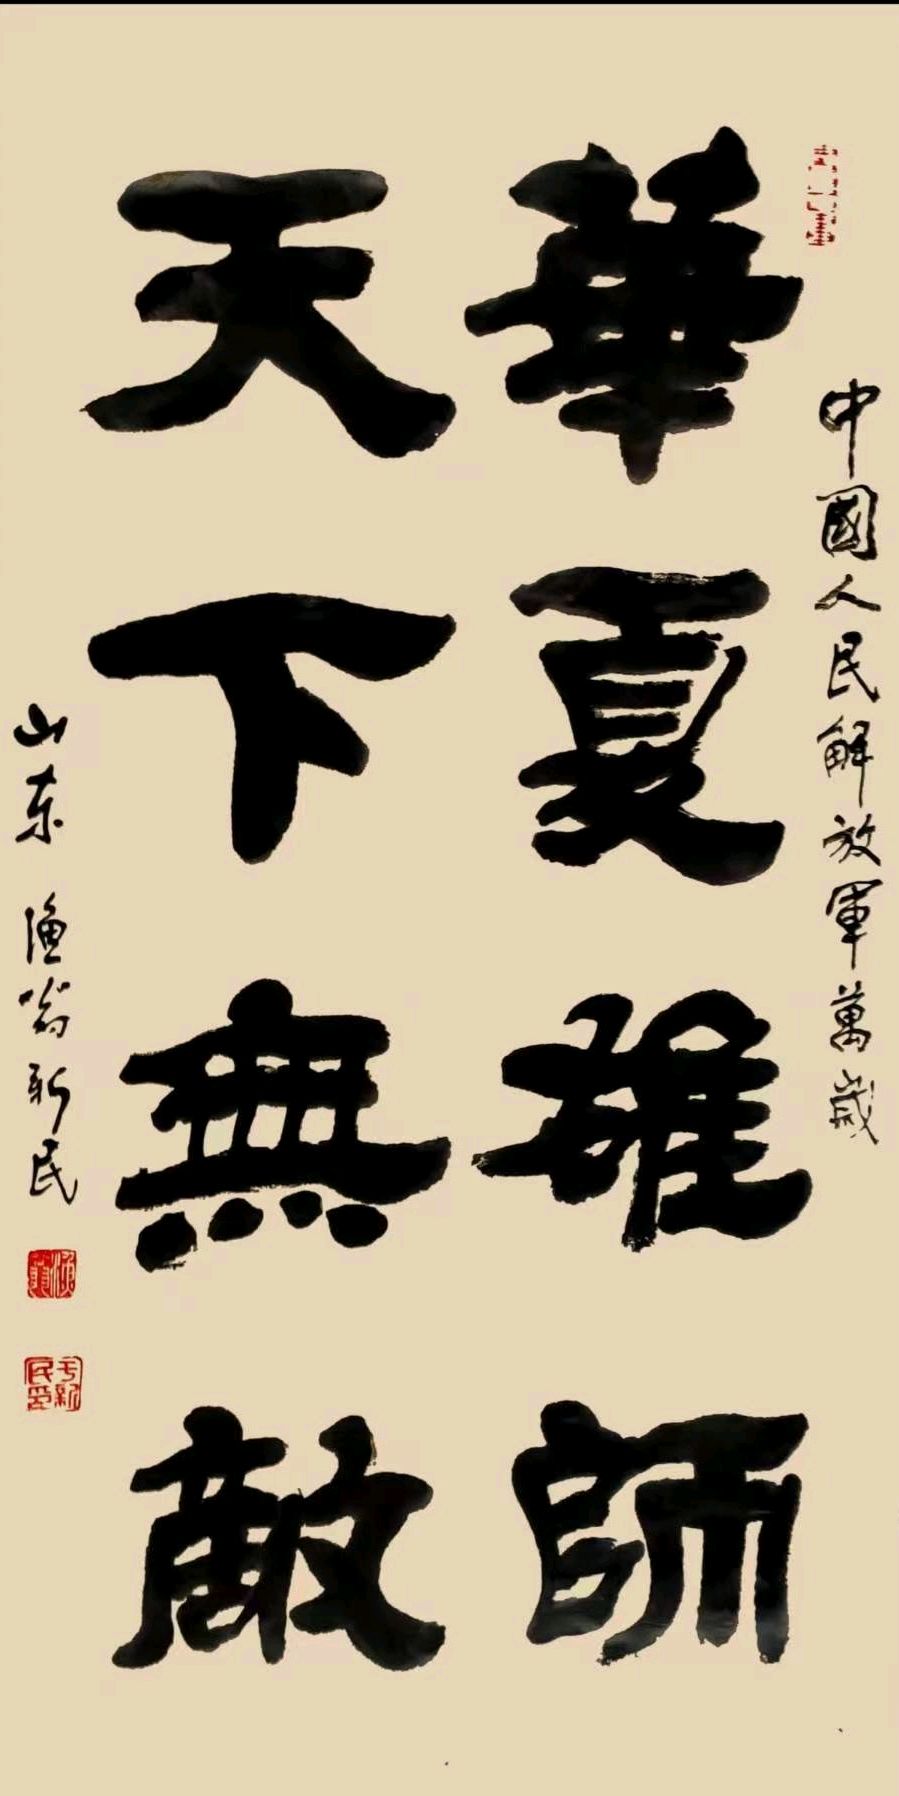 中國人民解放軍萬歲
華夏雄師
天下無敵
山東 漁翁新民